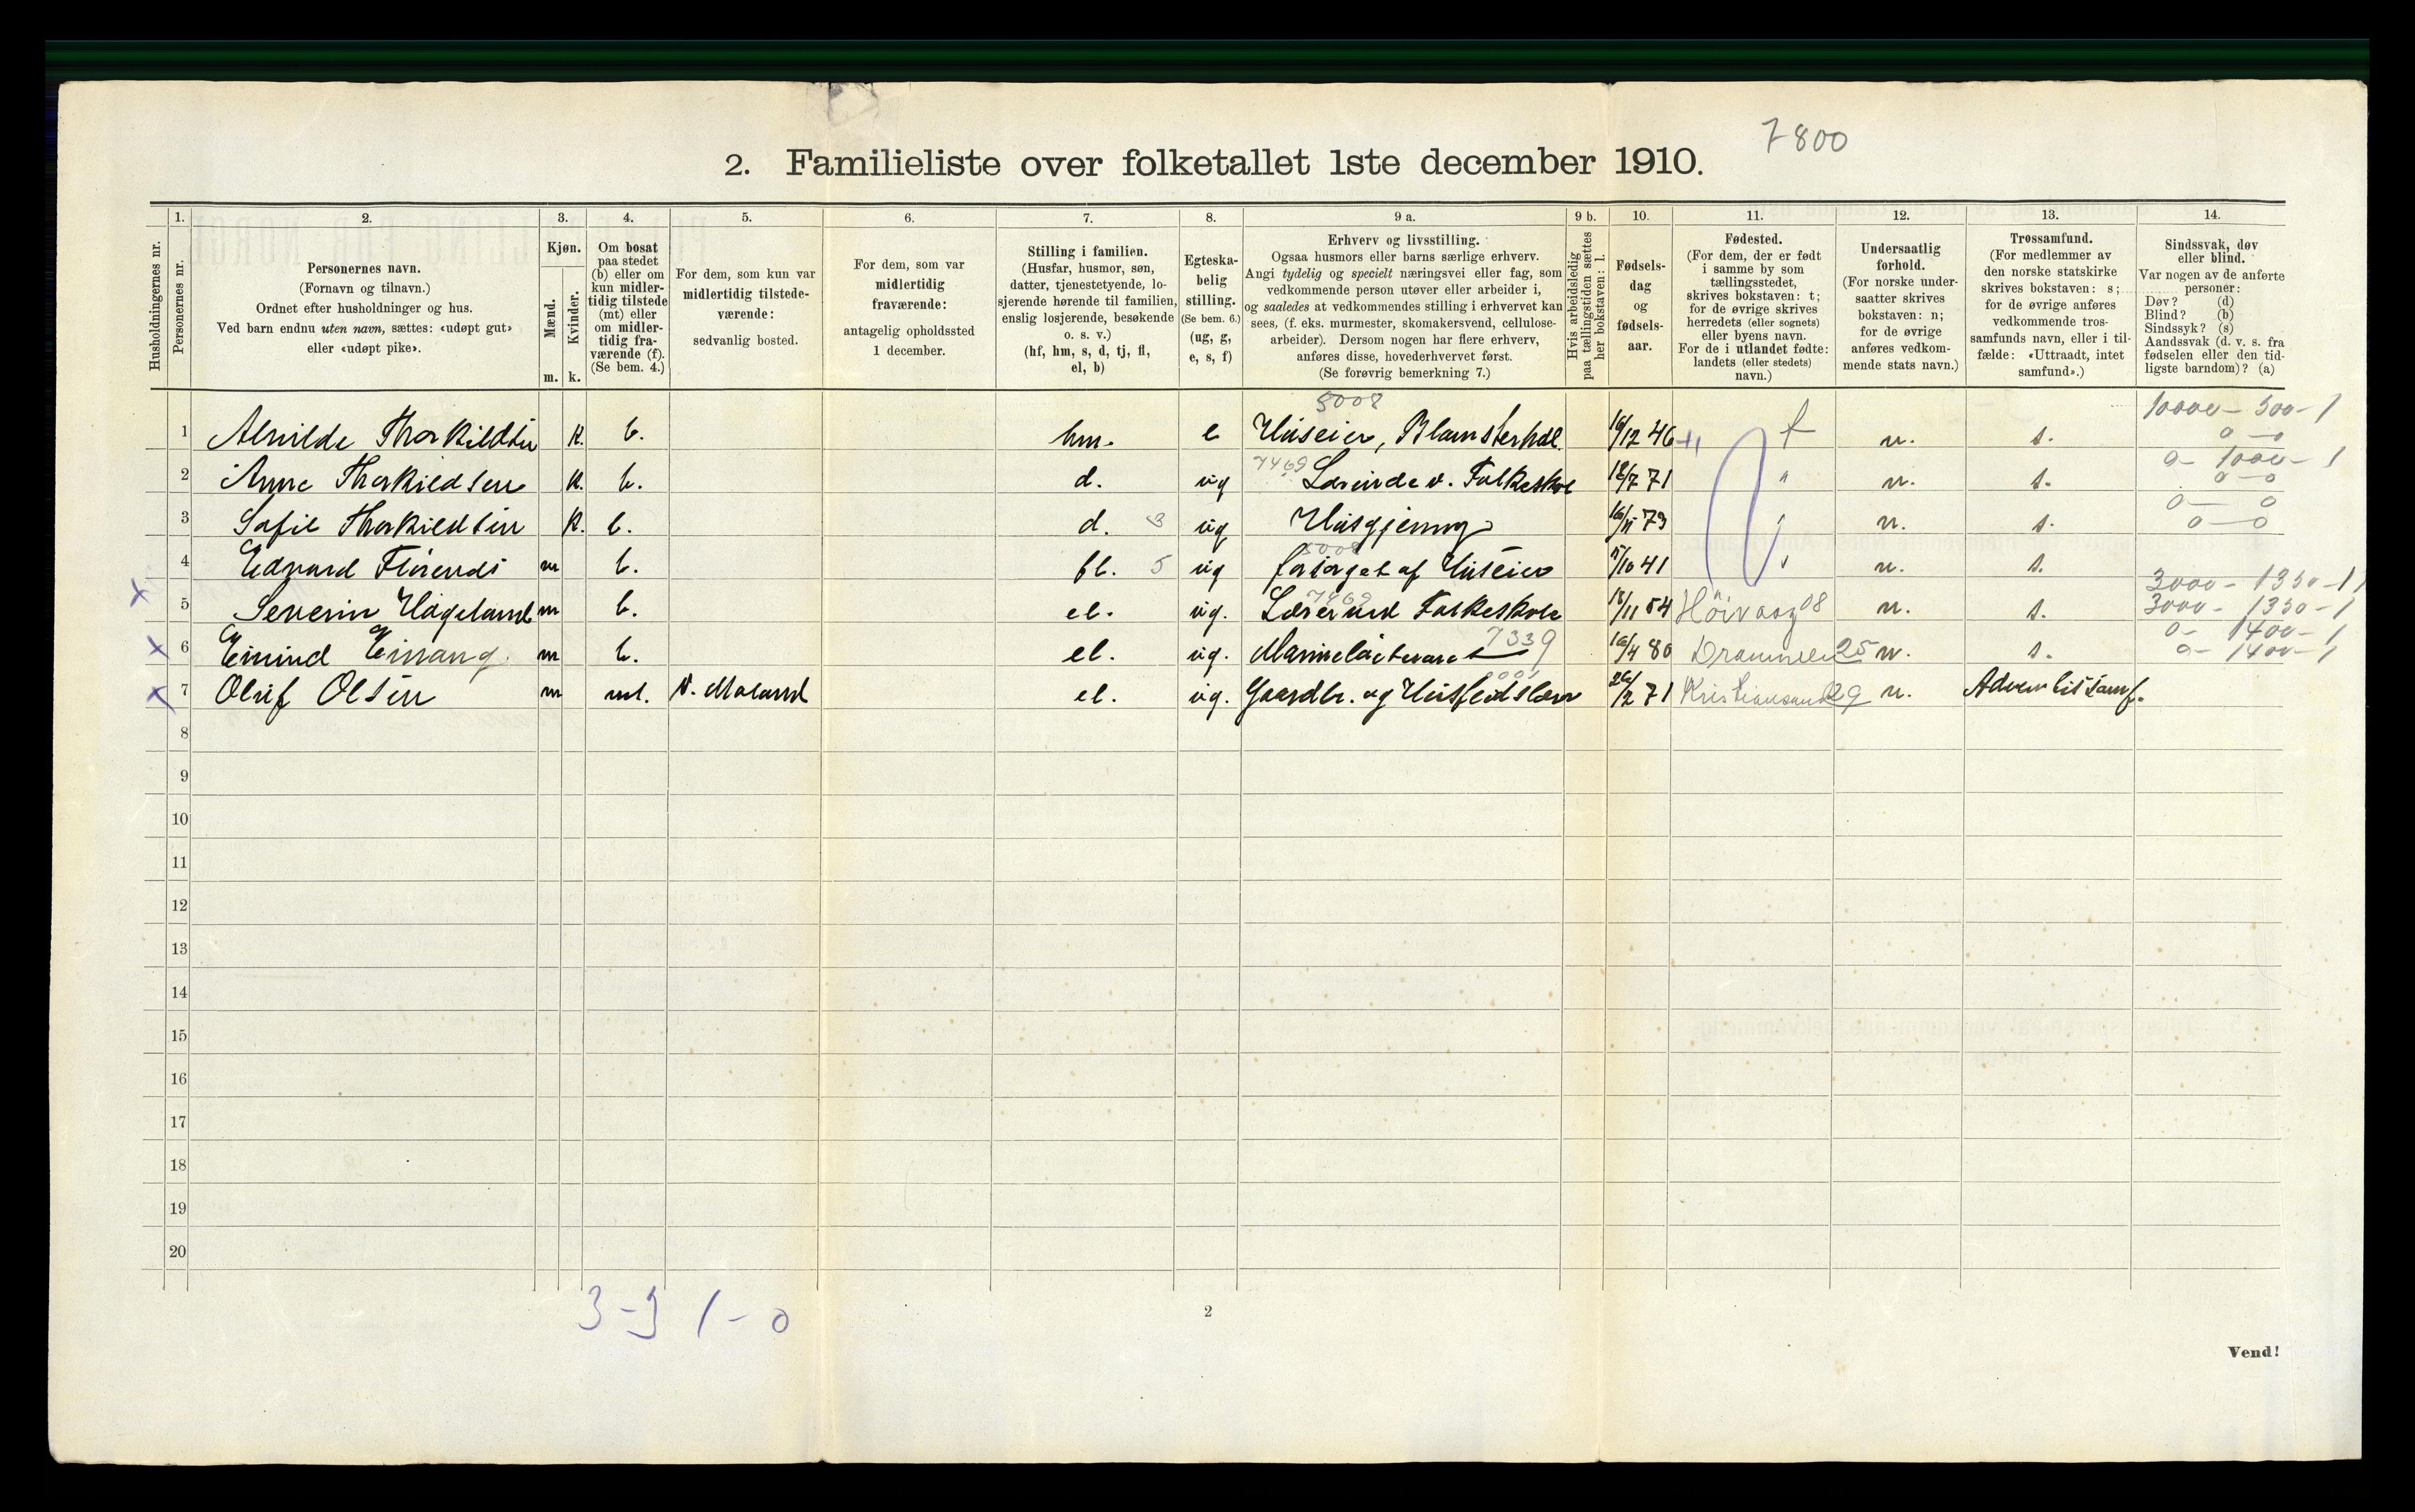 7800
2. Familieliste over folketallet 1ste december 1910.
Husholdningernes nr.
1. Personernes nr.
2. Personernes navn. (Fornavn og tilnavn.) Ordnet efter husholdninger og hus. Ved barn endnu uten navn, sættes: «udøpt gut» eller «udøpt pike».
3. Kjøn. Mænd. m. Kvinder. k.
4. Om bosat paa stedet (b) eller om kun midlertidig tilstede (mt) eller om midlertidig fraværende (f). (Se bem. 4.)
5. For dem, som kun var midlertidig tilstedeværende: sedvanlig bosted.
6. For dem, som var midlertidig fraværende: antagelig opholdssted 1 december.
7. Stilling i familien. (Husfar, husmor, søn, datter, tjenestetyende, losjerende hørende til familien, enslig losjerende, besøkende o. s. v.) (hf, hm, s, d, tj, fl, el, b)
8. Egteskabelig stilling. (Se bem. 6.) (ug, g, e, s, f)
9 a. Erhverv og livsstilling. Ogsaa husmors eller barns særlige erhverv. Angi tydelig og specielt næringsvei eller fag, som vedkommende person utøver eller arbeider i, og saaledes at vedkommendes stilling i erhvervet kan sees, (f. eks. murmester, skomakersvend, cellulosearbeider). Dersom nogen har flere erhverv, anføres disse, hovederhvervet først. (Se forøvrig bemerkning 7.)
9 b. Hvis arbeidsledig paa tællingstiden sættes her bokstaven: l.
10. Fødselsdag og fødselsaar.
11. Fødested. (For dem, der er født i samme by som tællingsstedet, skrives bokstaven: t; for de øvrige skrives herredets (eller sognets) eller byens navn. For de i utlandet fødte: landets (eller stedets) navn.)
12. Undersaatlig forhold. (For norske undersaatter skrives bokstaven: n; for de øvrige anføres vedkommende stats navn.)
13. Trossamfund. (For medlemmer av den norske statskirke skrives bokstaven: s; for de øvrige anføres vedkommende trossamfunds navn, eller i tilfælde: «Uttraadt, intet samfund».)
14. Sindssvak, døv eller blind. Var nogen av de anførte personer: Døv? (d) Blind? (b) Sindssyk? (s) Aandssvak (d. v. s. fra fødselen eller den tidligste barndom)? (a)
5008 10000 - 300 - 1
1 Alvilde Thorkildsen k. b. hm. e Huseier, Blomsterhdl. 16/12 46 t n. s. 0 - 0
7469 0 - 1000 - 1
2 Anne Thorkildsen k. b. d. ug Lærerinde v. Folkeskole 12/7 71 " n. s. 0 - 0
0 - 0
3 Sofie Thorkildsen k. b. d. 3 ug Husgjerning 16/11 73 " n. s. 0 - 0
5008
4 Edvard m b. fl. 5 ug forsørget af Huseier 11/10 41 " n. s.
7469 3000 - 1350 - 1
5 Severin Hageland m b. el. ug. Lærer ved Folkeskole 18/11 54 Höivaag 08 n. s. 3000 - 1350 - 1
7339 0 - 1400 - 1
6 Eivind Einang m b. el. ug. 16/4 80 Drammen 25 n. s. 0 - 1400 - 1
7 Oluf Olsen m mt. V. Moland el. ug. Gaardbr. og Husflidslærer 26/2 71 Kristiansand 29 n. Adventistsamf.
8
9
10
11
12
13
14
15
16
17
18
19
20
3 - 3 1 - 0
2
Vend!